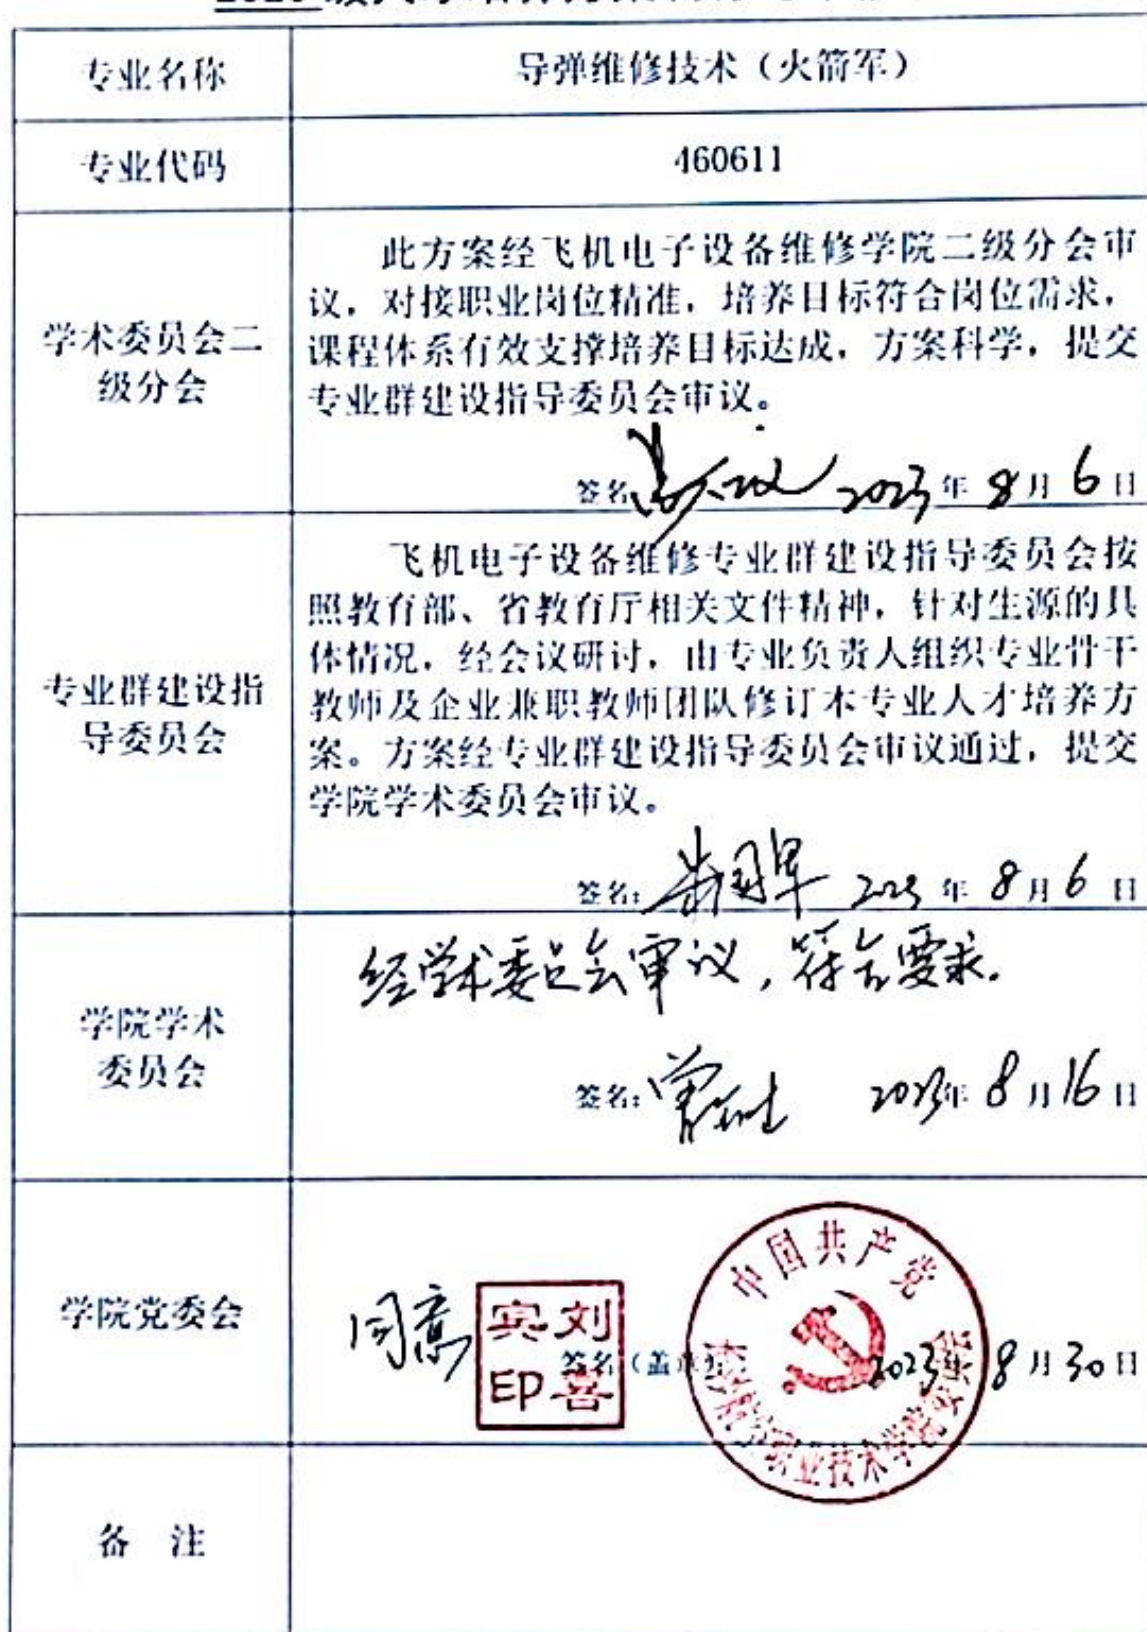 专业名称
导弹维修技术（火箭军）
专业代码
460611
学术委员会二
级分会
此方案经飞机电子设备维修学院二级分会审
议，对接职业岗位精准，培养目标符合岗位需求，
课程体系有效支撑培养目标达成，方案科学，提交
专业群建设指导委员会审议。
签名 2023年8月6日
专业群建设指
导委员会
飞机电子设备维修专业群建设指导委员会按
照教育部、省教育厅相关文件精神，针对生源的具
体情况，经会议研讨，由专业负责人组织专业骨干
教师及企业兼职教师团队修订本专业人才培养方
案。方案经专业群建设指导委员会审议通过，提交
学院学术委员会审议。
签名: 2023年8月6日
学院学术
委员会
经学术委员会审议，符合要求。
签名: 2023年8月16日
学院党委会
同意
宾刘
印喜
签名（盖章
2023年8月30日
中国共产党
航空职业技术学院委员会
备 注